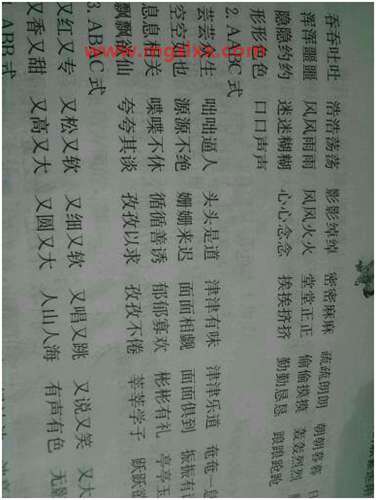 吞吞吐吐 浩浩荡荡 影影绰绰 密密麻麻 疏疏朗朗 朝朝暮暮
浑浑噩噩 风风雨雨 风风火火 堂堂正正 偷偷摸摸 轰轰烈烈
隐隐约约 迷迷糊糊 心心念念 挨挨挤挤 勤勤恳恳 踉踉跄跄
形形色色 口口声声
2. AABC 式
芸芸众生 咄咄逼人 头头是道 津津有味 津津乐道 奄奄一
空空如也 源源不绝 姗姗来迟 面面相觑 面面俱到 振振有
息息相关 喋喋不休 循循善诱 郁郁寡欢 彬彬有礼 亭亭玉
飘飘欲仙 夸夸其谈 孜孜以求 孜孜不倦 莘莘学子 跃跃
3. ABAC 式
又红又专 又松又软 又细又软 又唱又跳 又说又笑 又大
又香又甜 又高又大 又圆又大 人山人海 有声有色 无影
ABB 式